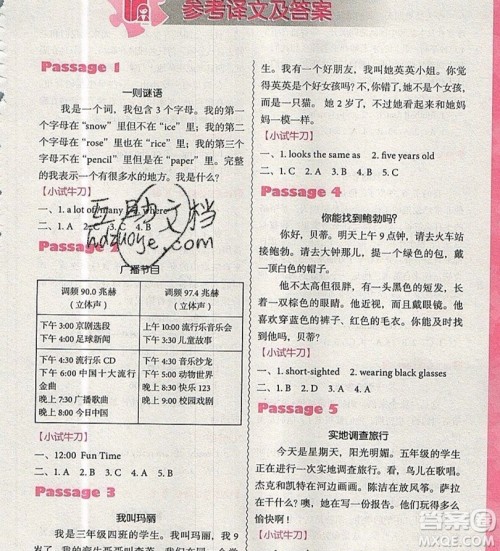 参考译文及答案
Passage 1
一则谜语
我是一个词，我包含 3 个字母。我的第一
个字母在“snow”里但不在“ice”里；我的第
二个字母在“rose”里但不在“rice”里；我的
第三个字母不在“pencil”里但是在“paper”里。完整
的我表示一个有很多水的地方。我是什么?
【小试牛刀】
一、1. a lot of/many
二、1. A 2. C
互助文档
hdzuoye.com
Passage 2
广播节目
调频 90.0 兆赫
（立体声）
调频 97.4 兆赫
（立体声）
下午 3:00 京剧选段
下午 4:00 足球新闻
下午 1:00 流行乐音乐会
下午 3:30 儿童故事
下午 4:30 流行乐 CD
下午6:00 中国十大流行
金曲
晚上7:30 广播戏剧
晚上 8:00 今日中国
下午 4:30 音乐沙龙
下午 5:00 动物世界
晚上 8:30 快乐 123
晚上 9:00 校园戏剧
【小试牛刀】
一、12:00 Fun Time
二、1. A 2. B 3. C 4. A 5. B
Passage 3
我叫玛丽
我是三年级四班的学生。我叫玛丽，我 9
生。我有一个好朋友，我叫她英英小姐。你觉
得英英是个好女孩吗? 不，她不是个女孩，
而是一只猫。她 2 岁了，不过她走起来和她妈
妈一模一样。
【小试牛刀】
一、1. looks the same as 2. five years old
二、1. C 2. B 3. C 4. B 5. C
Passage 4
你能找到鲍勃吗?
你好，贝蒂。明天上午 9 点钟，请去火车站
接鲍勃。请去车站时，带上一个绿色的包，戴
一顶白色的帽子。
他不高，但很胖，有一头黑色的短发，长着
一双棕色的眼睛。他近视，而且戴眼镜。他喜
欢穿蓝色的裤子、红色的毛衣。我认为你可以
发现他。谢谢你，贝蒂。
【小试牛刀】
一、1. short-sighted 2. wearing black glasses
二、1. B 2. C 3. A 4. A 5. B
Passage 5
实地调查旅行
今天是星期天，阳光明媚。五年级的学生
们在进行实地调查旅行。看，鸟儿在歌唱。
杰克和凯特在河边画画。陈洁在放风筝。萨
拉在干什么? 噢，她在